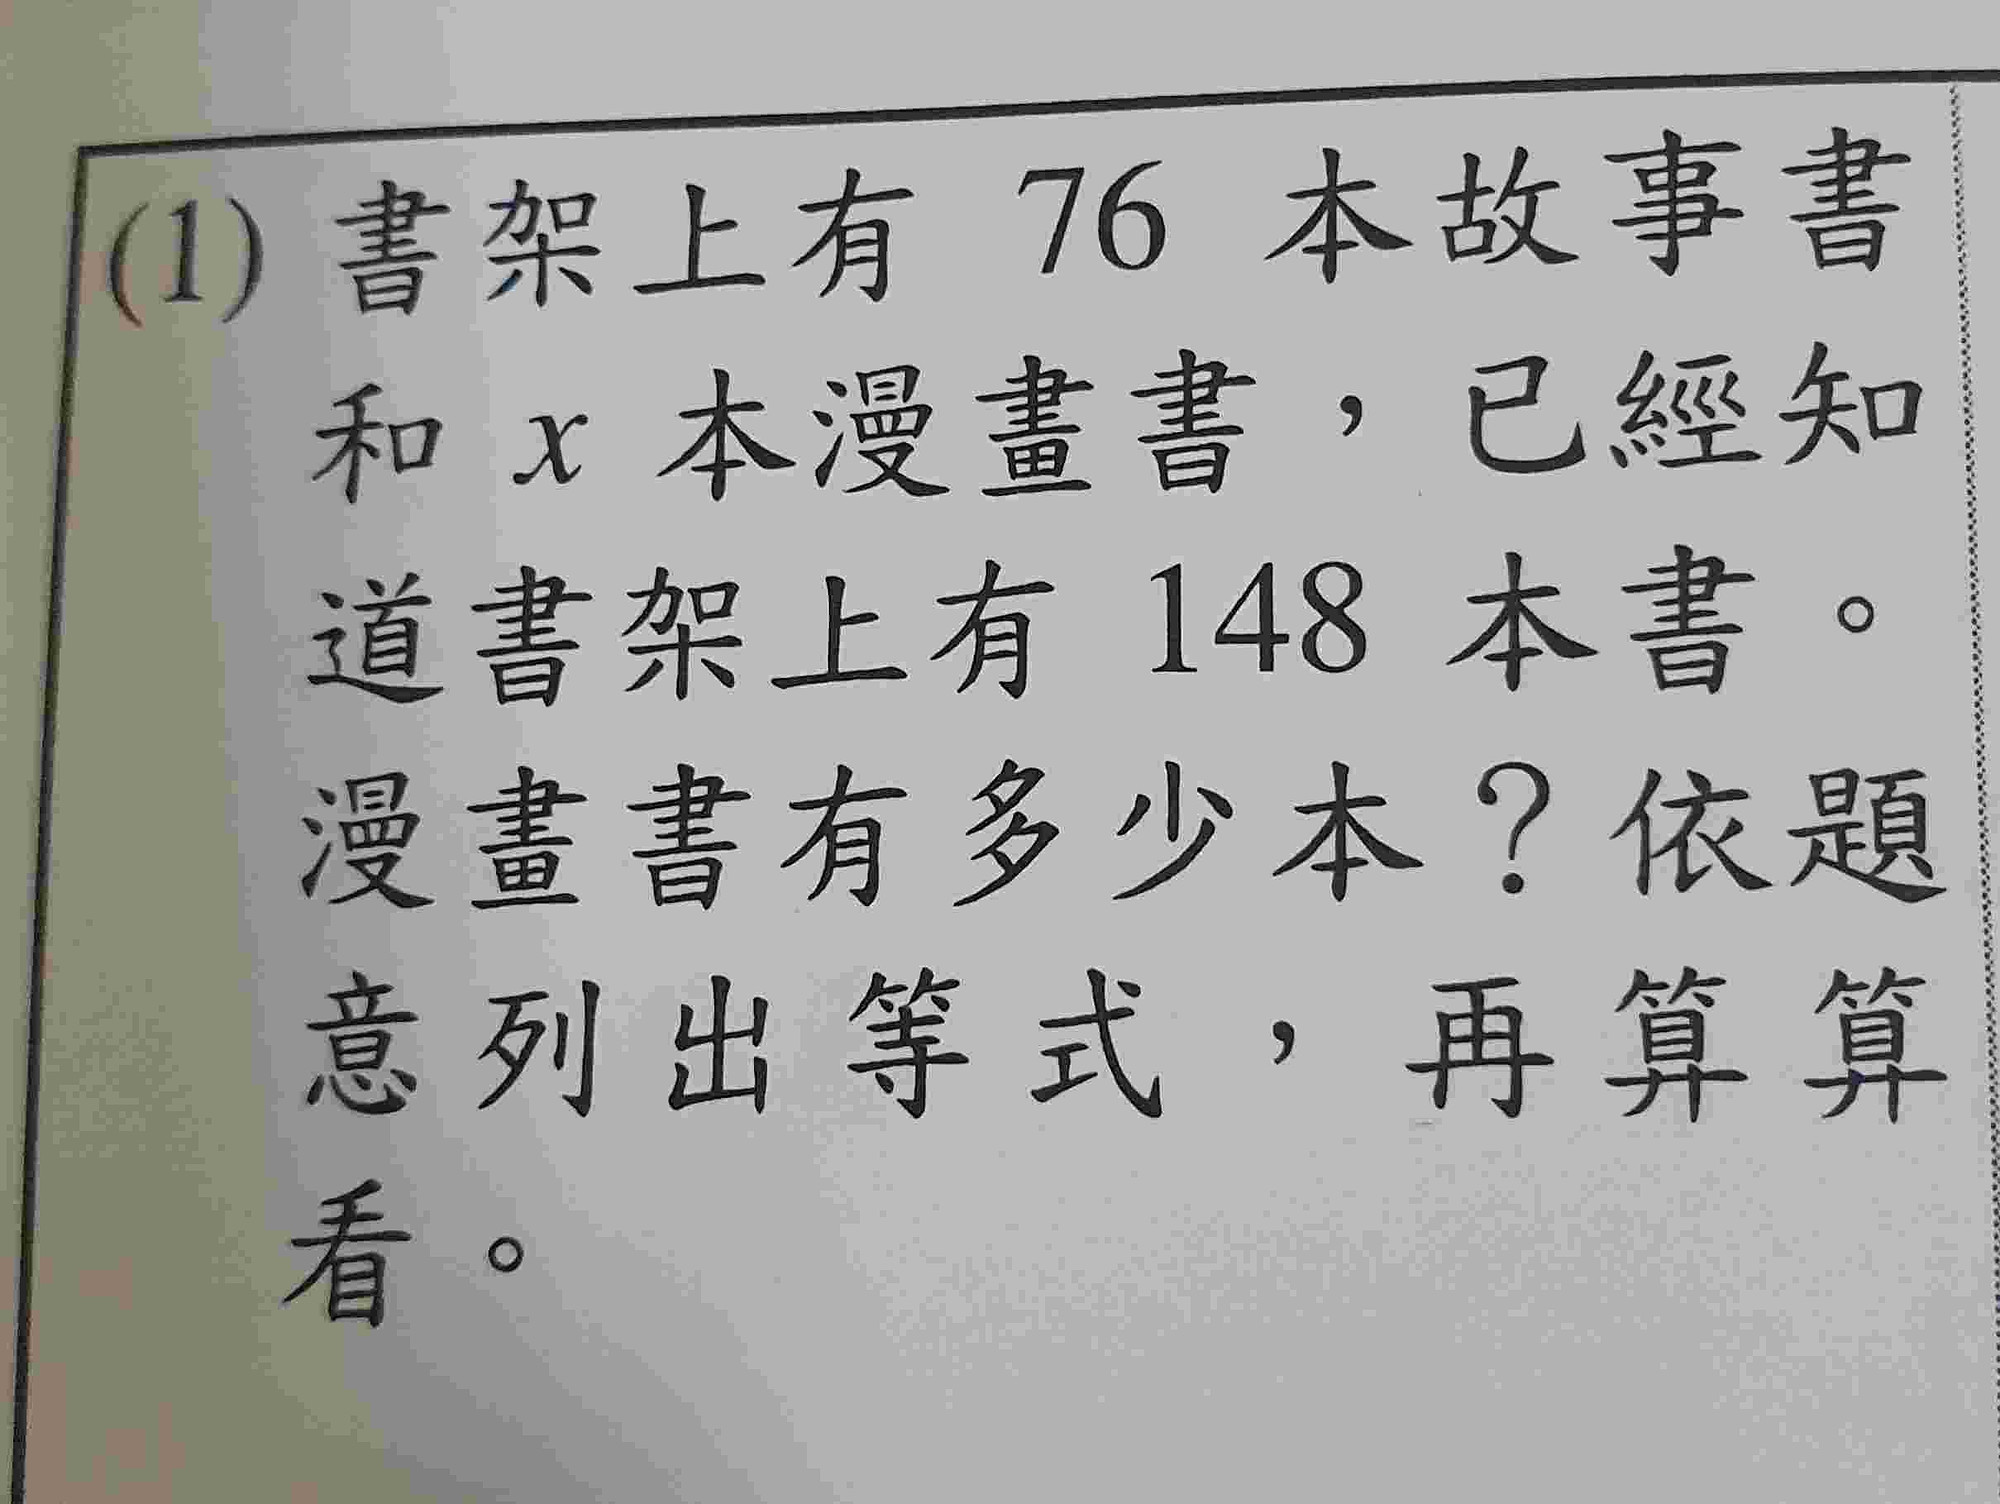 (1) 書架上有 76 本故事書
和 x 本漫畫書，已經知
道書架上有 148 本書。
漫畫書有多少本？依題
意列出等式，再算算
看。